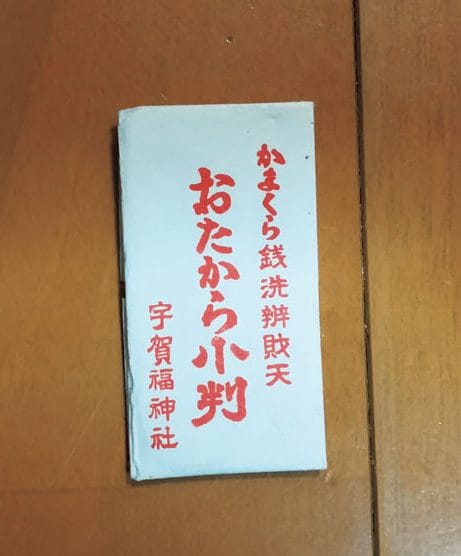 かまくら銭洗辨財天
おたから小判
宇賀福神社